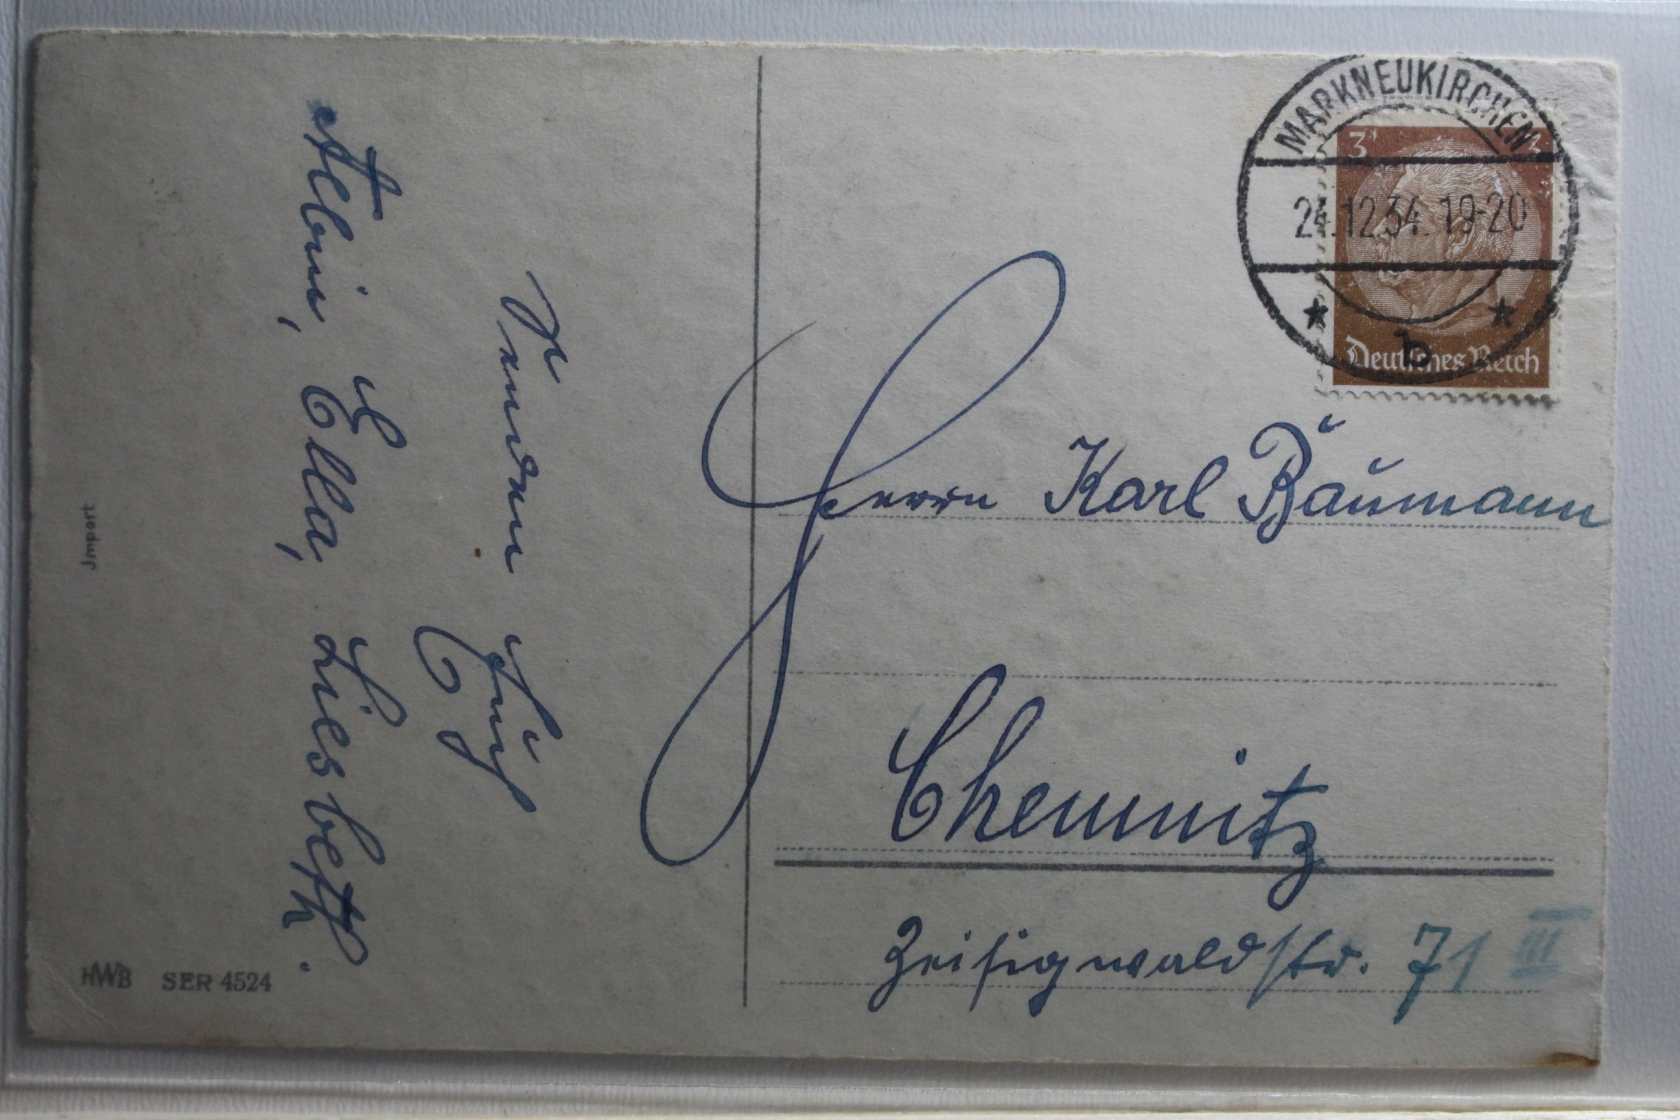 MARKNEUKIRCHEN
3 3
24.12.34. 19-20
* b *
Deutsches Reich
Herrn Karl Baumann
Chemnitz
Zeisigwaldstr. 71 III
Senden Euch
Albin, Ella, Liesbeth.
Import
HWB SER 4524